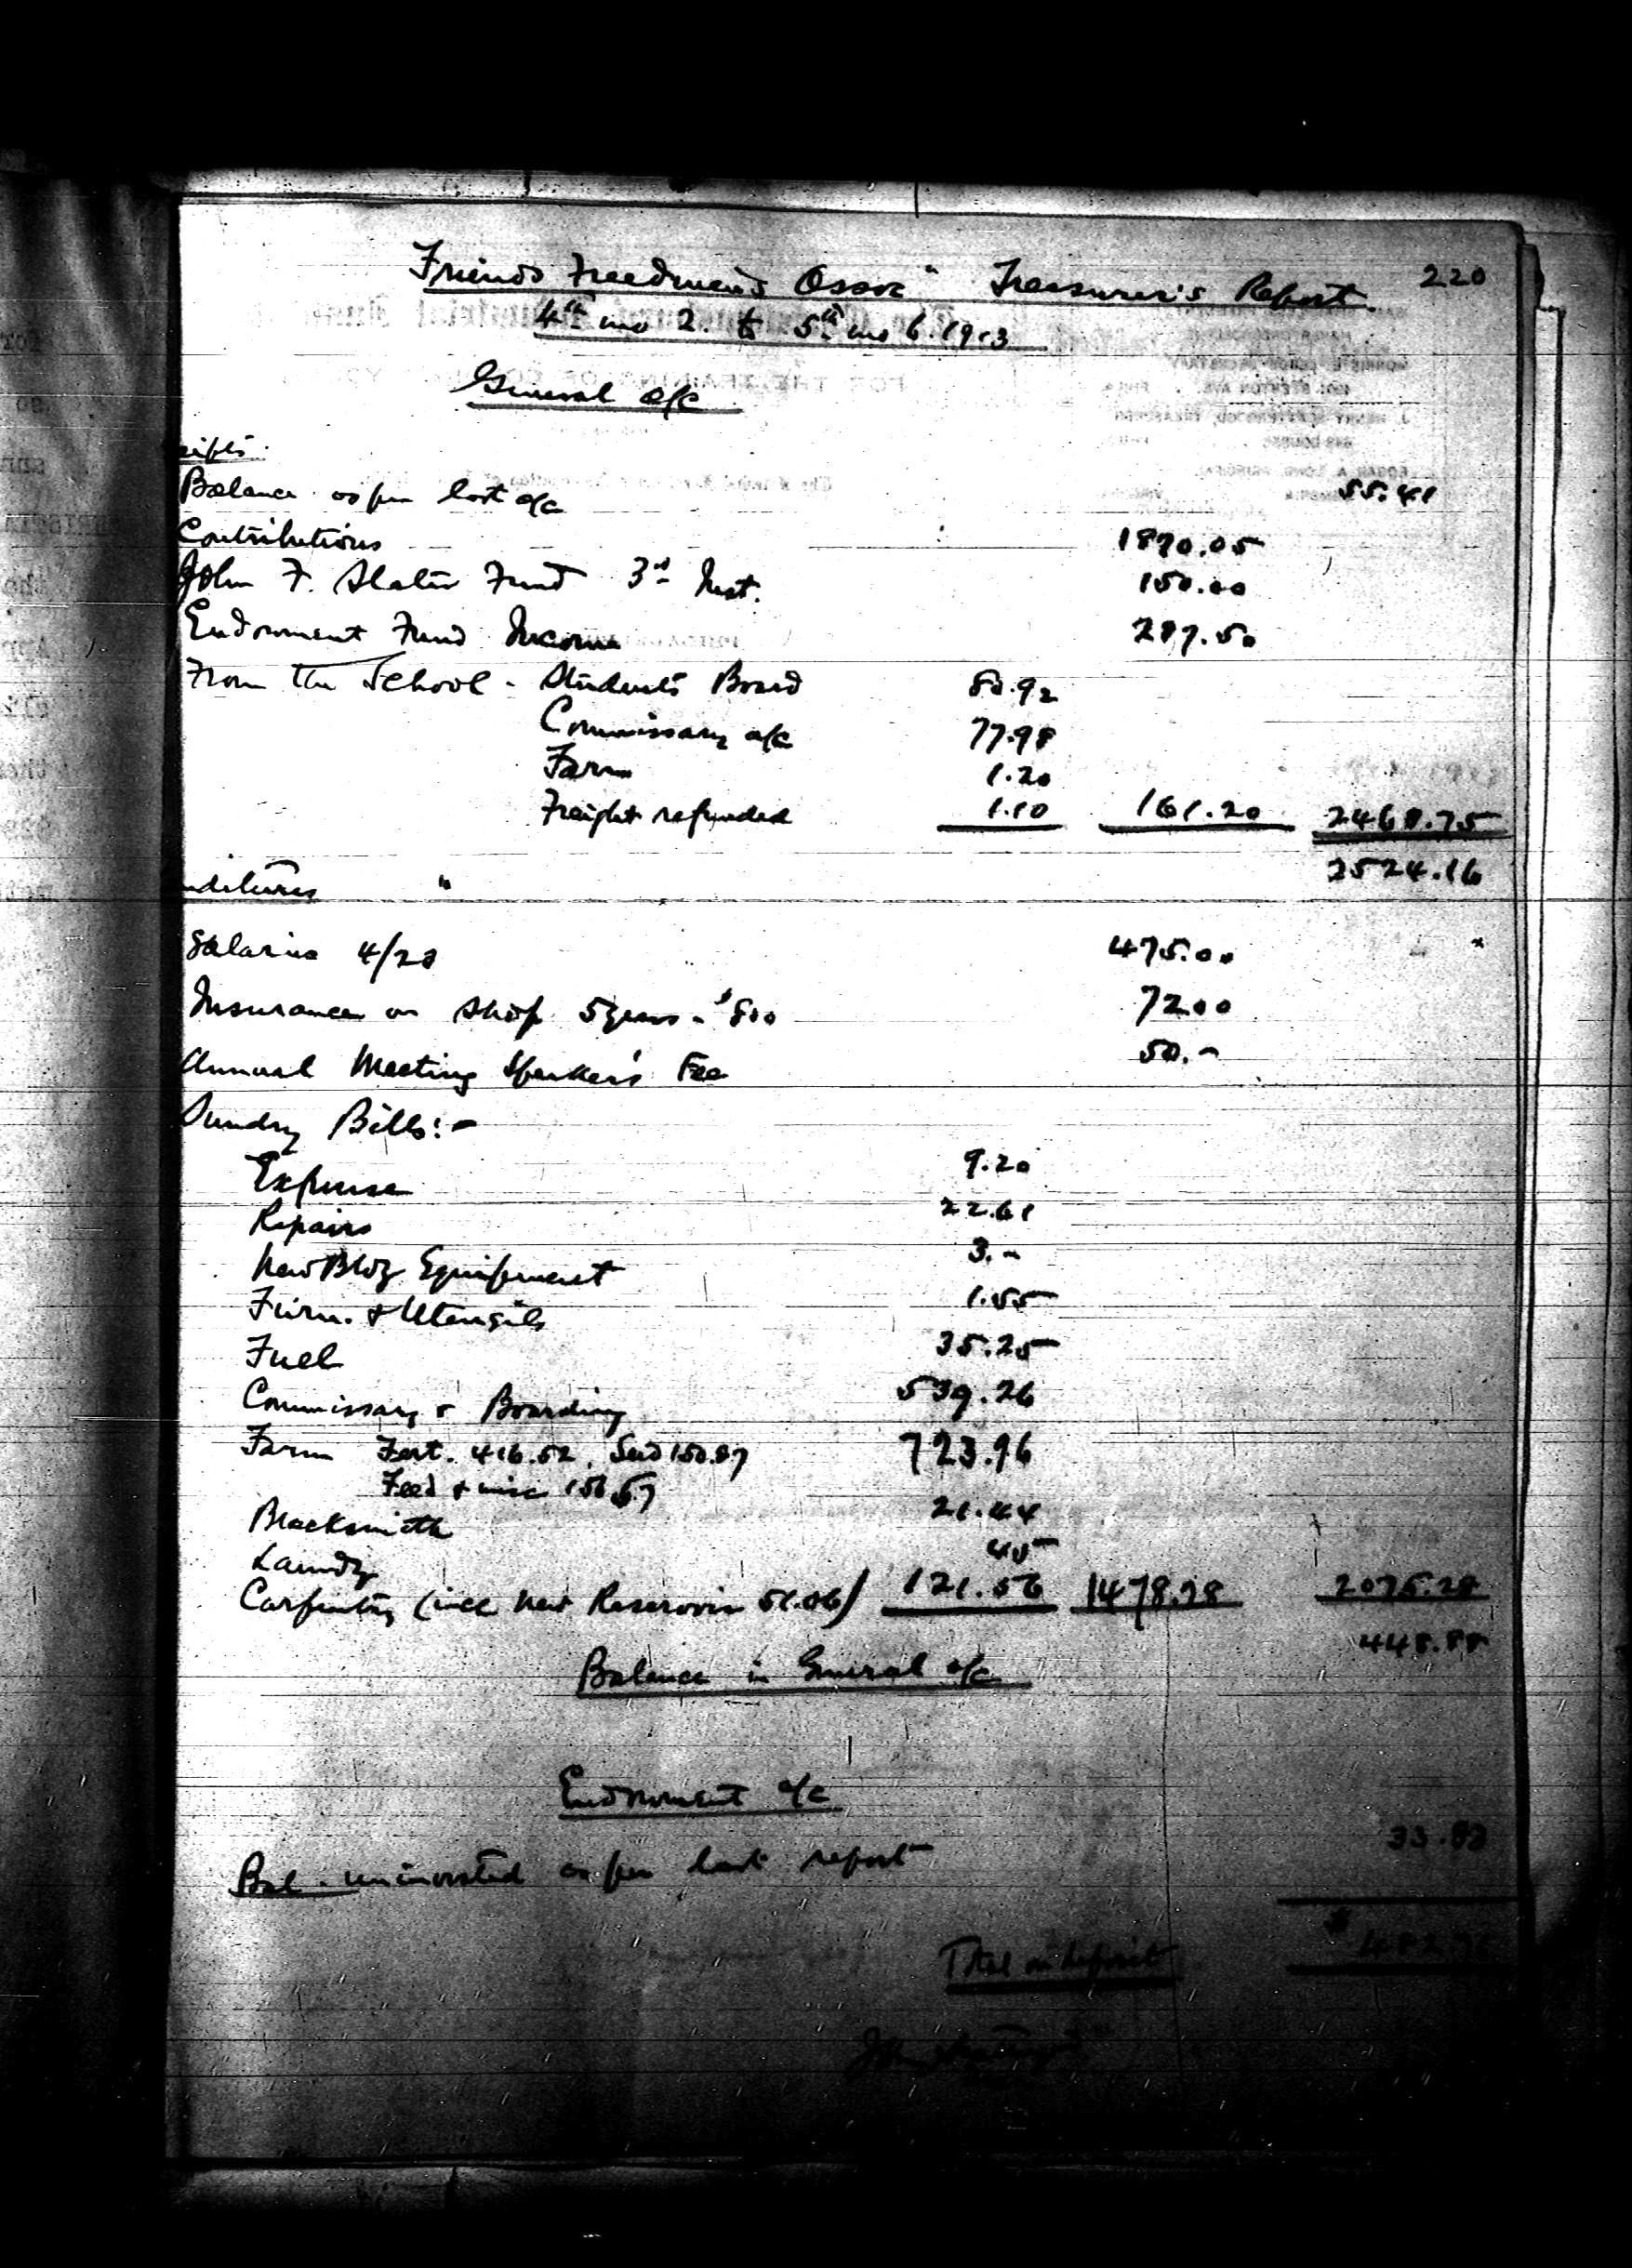 220
Friends Freedmen's Assoc'n Treasurer's Report
4th mo 2. to 5th mo 6. 1913
General a/c
eipts.
Balance as per last a/c 55.41
Contributions 1870.05
John F. Slater Fund 3d Inst. 150.00
Endowment Fund Income 287.50
From the School - Students Board 80.92
Commissary a/c 77.98
Farm 1.20
Freight refunded 1.10 161.20 2468.75
2524.16
nditures "
Salaries 4/28 475.00
Insurance on Shop 5 years - $800 72.00
Annual Meeting Speaker's Fee 50.-
Sundry Bills:-
Expense 9.20
Repairs 22.61
New Bldg Equipment 3.-
Furn. & Utensils 1.55
Fuel 35.25
Commissary & Boarding 539.26
Farm Fert. 416.52, Seed 150.87 723.96
Feed & misc 156.57
Blacksmith 21.44
Laundry 45
Carpentry (incl new Reservoir 51.06) 121.56 1478.28 2075.28
448.88
Balance in General a/c
Endowment a/c
Bal. uninvested as per last report 33.88
Total on deposit $482.76